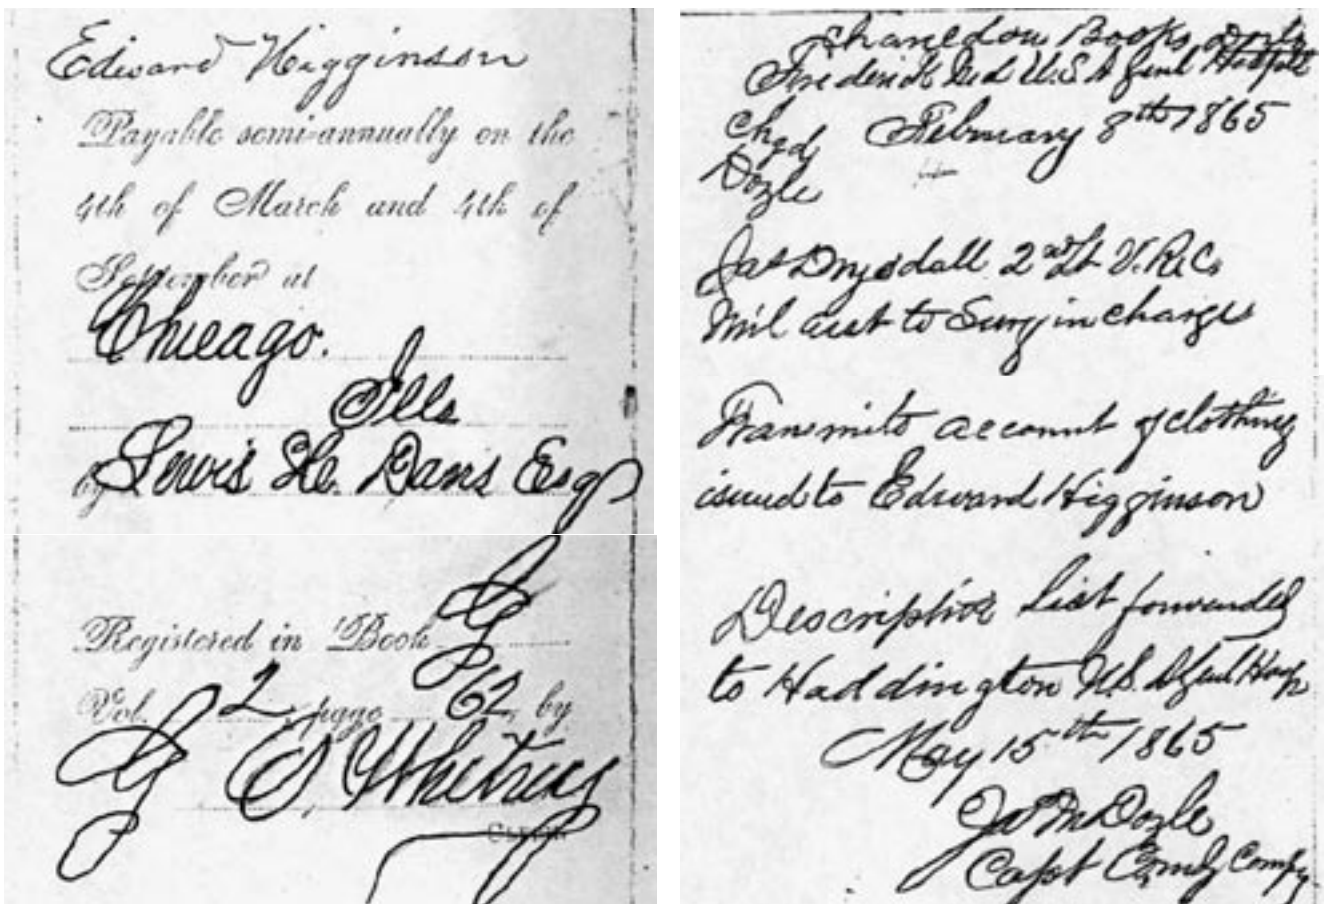 Edward Higginson
Payable semi-annually on the
4th of March and 4th of
September at
Chicago.
Ills
by Lewis H. Davis Esq
Registered in Book G
Vol. 2, page 62, by
G S Whitney
Clerk
Books
Frederick Md U.S A Genl Hospital
Chgd February 8th 1865
Doyle
Jas Drysdall 2nd Lt V.R.C.
Mil asst to Surg in charge
Transmits account of clothing
issued to Edward Higginson
Descriptive list forwarded
to Haddington U.S. A Genl Hosp
May 15th 1865
Jas M Doyle
Capt Comdg Compy